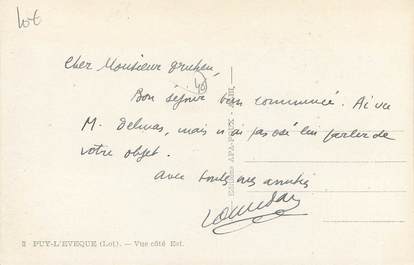 Lot
Cher Monsieur
40
Bon séjour bien commencé. Ai vu
M. Delmas, mais n'ai pas osé lui parler de
votre objet.
Avec toutes mes amitiés
Editions APA-POUX - ALBI
3 - PUY-L'EVEQUE (Lot). — Vue côté Est.